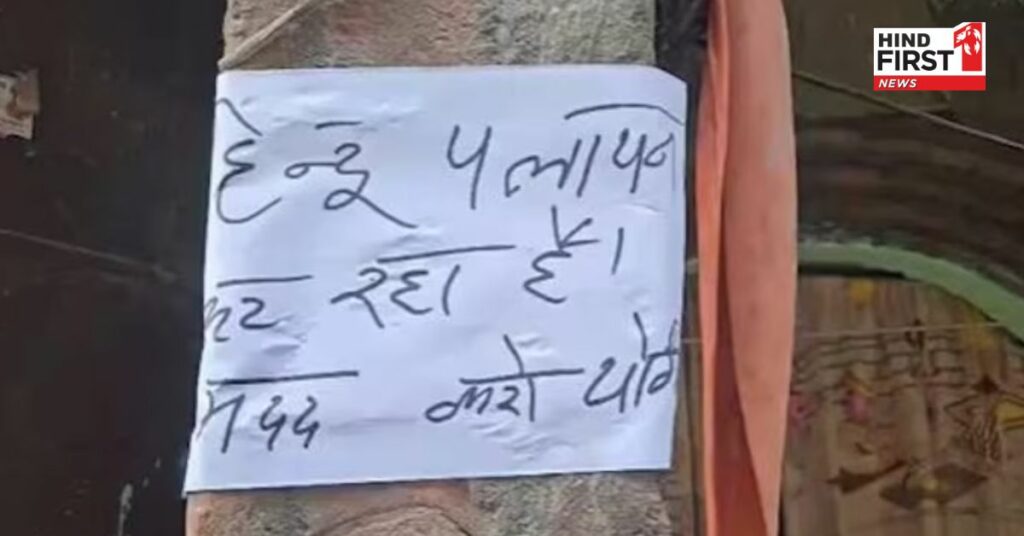 HIND
FIRST
NEWS
हिन्दू पलायन
कर रहा है।
मदद करो योगी